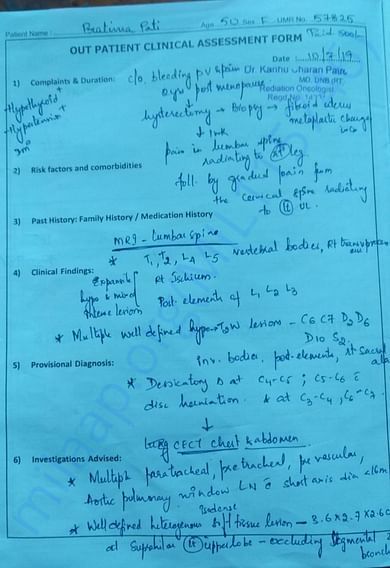 Patient Name : Pratima Pati Age 50 Sex F UMR No. 57825
OUT PATIENT CLINICAL ASSESSMENT FORM
Date : 10/7/19
1) Complaints & Duration: c/o bleeding pv & pain Dr. Kanhu Charan Patro
MD, DNB (RT)
post menopause
Radiation Oncologist
Regd No.
Hypothyroid +
Hypertension +
hysterectomy → Biopsy → fibroid uterus
metaplastic changes
↓ 1mk
pain in lumbar spine
radiating to Rt leg
2) Risk factors and comorbidities
foll. by gradual pain from
the cervical spine radiating
to Lt UL.
3) Past History: Family History / Medication History
MRI - Lumbar spine
* T1, T2, L4 L5 vertebral bodies, Rt transv process
4) Clinical Findings: Rt Ischium.
Expansile
hypo & mixed
intense lesion
Post. elements of L1 L2 L3
* Multiple well defined hypo T2W lesions - C6 C7 D2 D6
D10 S2.
5) Provisional Diagnosis: Inv. bodies, post-elements, Rt sacral ala
* Desicatory Δ at C4-C5 ; C5-C6 c̄
disc herniation. & at C3-C4, C6-C7.
↓
CECT Chest & abdomen.
6) Investigations Advised:
* Multiple paratracheal, pre tracheal, pre vascular,
Aortic pulmonary window LN c̄ short axis dia <16m
Isodense
* Well defined heterogenous s/f tissue lesion - 3.6x2.7x2.6c
at Suprahilar Lt upper lobe - excluding segmental
bronch
milaap.org